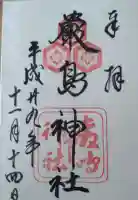 奉拝
厳島神社
平成廿九年
十一月十四日